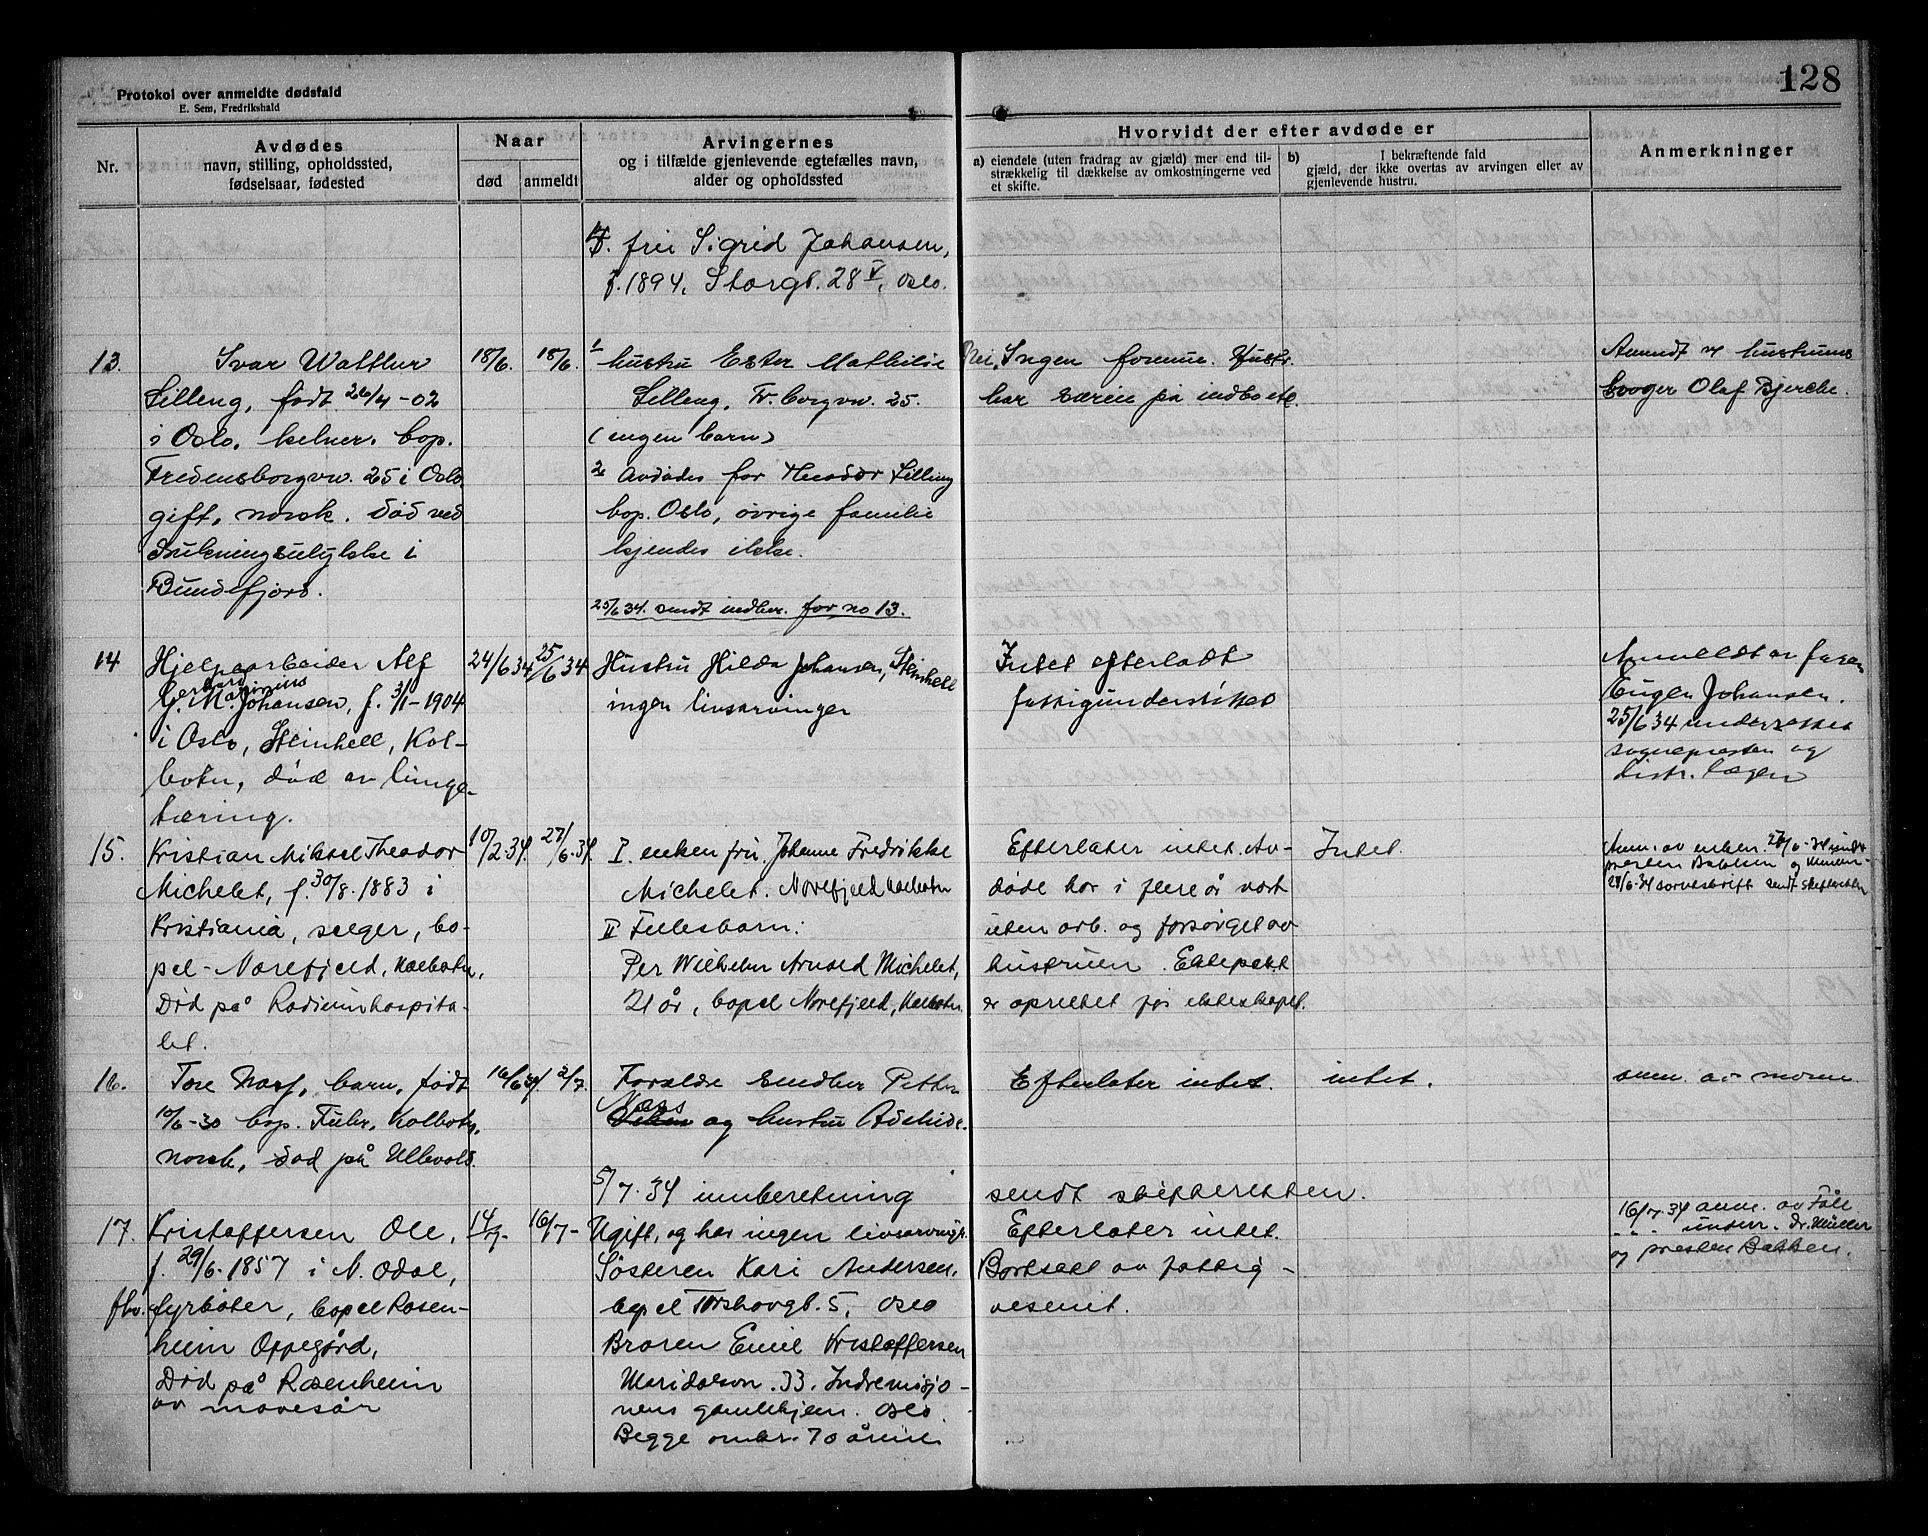 128
Protokol over anmeldte dødsfald
E. Sem, Fredrikshald
Nr.
Avdødes
navn, stilling, opholdssted,
fødselsaar, fødested
Naar
død
anmeldt
Arvingernes
og i tilfælde gjenlevende egtefælles navn,
alder og opholdssted
Hvorvidt der efter avdøde er
a) eiendele (uten fradrag av gjæld) mer end til-
strækkelig til dækkelse av omkostningerne ved
et skifte.
b) I bekræftende fald
gjæld, der ikke overtas av arvingen eller av
gjenlevende hustru.
Anmerkninger
fru Sigrid Johansen,
f. 1894, Storgt. 28 V, Oslo.
13.
Ivar Wattlur
Lilleng, født 26/4 -02
i Oslo, kelner, bop.
Fredensborgvn. 25 i Oslo
gift, norsk. død ved
drukningsulykke i
Bundefjord.
18/6.
18/6.
1 hustru Ester Mathilie
Lilleng, Fr.borgvn. 25.
(ingen barn)
2 Avdødes far Theodor Lilleng
bop. Oslo, øvrige familie
kjendes ikke.
25/6 34. sendt indber. for no 13.
Nei, Ingen formue. Hustr.
har særeie på indbo etc.
Anmdt av hustruens
svoger Olaf Bjerche.
14
Hjelpearbeider Alf
Gerhard Marinius
G. M. Johansen, f. 3/1 - 1904
i Oslo, Steinhell, Kol-
botn, død av lunge-
tæring.
24/6 34
25/6 34
Hustru Hilda Johansen, Steinhell
ingen livsarvinger
Intet efterladt
fattigunderstøttet
Anmeldt av faren
Eugen Johansen.
25/6 34 underrettet
sognepresten og
distr. lægen
15.
Kristian Mikael Theodor
Michelet, f. 30/8. 1883 i
Kristiania, selger, bo-
pel - Norefjeld, Kolbotn,
Død på Radiumhospita-
let.
10/2.34.
27/6.34.
I. enken fru Johanne Fredrikke
Michelet. Norefjeld Kolbotn
II Fellesbarn:
Per Wilhelm Arnold Michelet,
21 år, bopel Norefjeld, Kolbotn.
Efterlater intet. Av-
døde har i flere år vært
uten arb. og forsørget av
hustruen. Ektepakt
er oprettet før ekteskapet.
Intet.
Anm. av enken. 27/6-34 undr
presten Bakken og
28/6-34 sendt skifteretten
16.
Tore Næss, barn, født
10/6-30 bop. Kolbotn,
norsk, død på Ullevold.
16/6 34.
2/7.
Forældre Petter
Næss
og hustru Adelheide.
Efterlater intet.
intet.
anm. av moren
5/7.34 innberetning sendt skifteretten.
17.
Kristoffersen Ole,
f. 29/6. 1857 i N. Odal,
fhv. fyrbøter, bopel Rosen-
heim Oppegård,
Død på Rosenheim
av mavesår
14/7.
16/7 -
Ugift, og har ingen livsarving.
Søsteren Kari Andersen,
bopel Torshovgt. 5, Oslo
Broren Emil Kristoffersen
Maridalsvn. 33. Indremisjo-
nens gamlehjem. Oslo.
Begge omkr. 70 årene
Efterlater intet.
Bortsatt av fattig-
vesenet.
16/7.34 anm. av
underr. Dr. Müller
og presten Bakken.